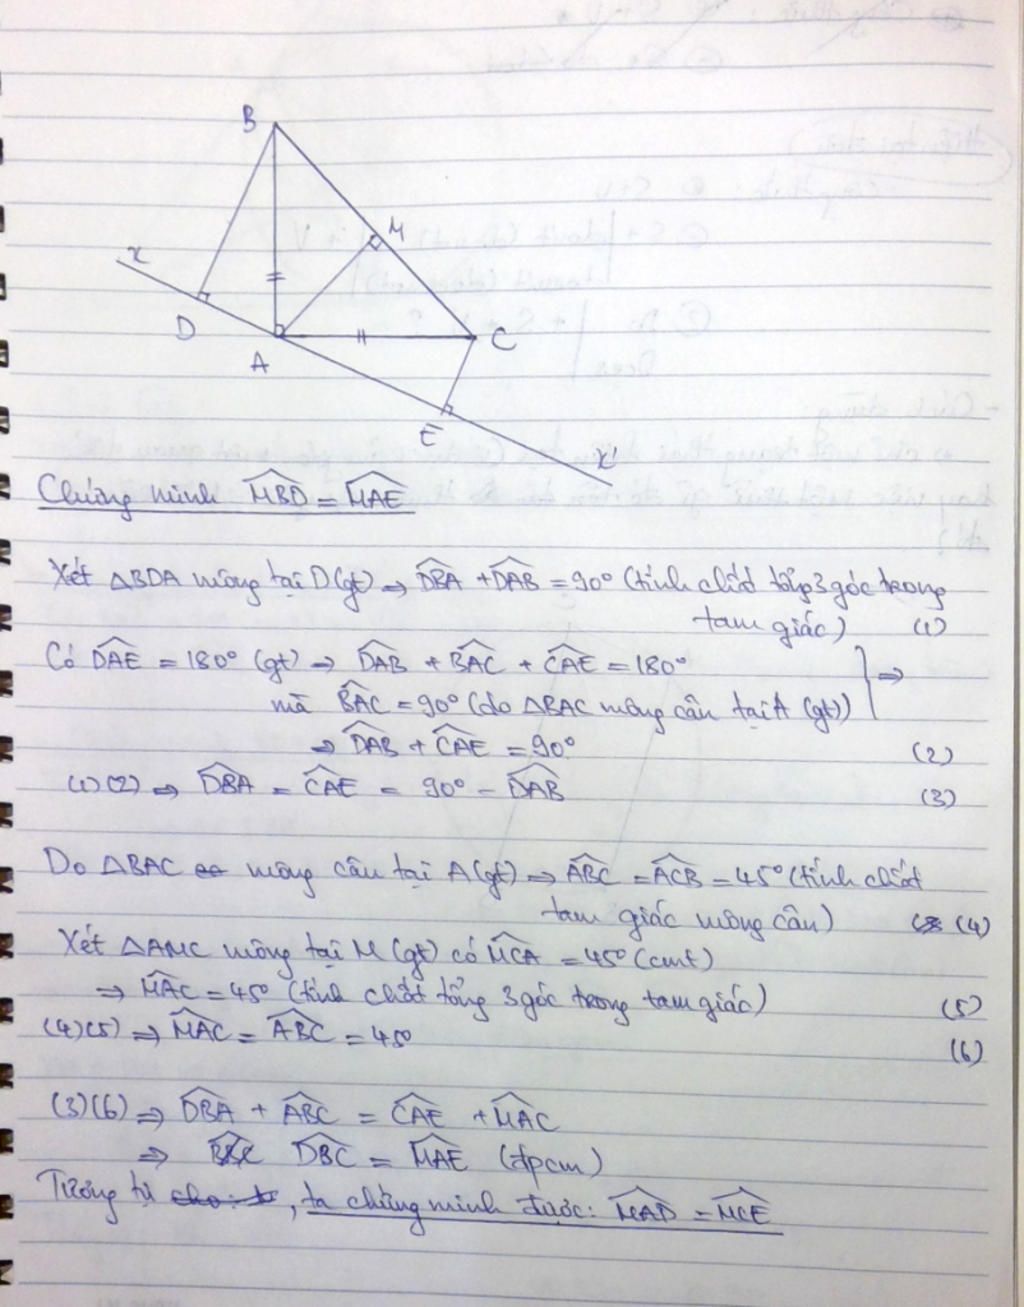 B
M
x
D
A
C
E
x'
Chứng minh \widehat{MBD} = \widehat{MAE}
Xét ΔBDA vuông tại D (gt) ⇒ \widehat{DBA} + \widehat{DAB} = 90° (tính chất tổng 3 góc trong
tam giác) (1)
Có \widehat{DAE} = 180° (gt) ⇒ \widehat{DAB} + \widehat{BAC} + \widehat{CAE} = 180° } ⇒
mà \widehat{BAC} = 90° (do ΔBAC vuông cân tại A (gt))
⇒ \widehat{DAB} + \widehat{CAE} = 90° (2)
(1)(2) ⇒ \widehat{DBA} = \widehat{CAE} = 90° - \widehat{DAB} (3)
Do ΔBAC vuông cân tại A (gt) ⇒ \widehat{ABC} = \widehat{ACB} = 45° (tính chất
tam giác vuông cân) (4)
Xét ΔAMC vuông tại M (gt) có \widehat{MCA} = 45° (cmt)
⇒ \widehat{MAC} = 45° (tính chất tổng 3 góc trong tam giác) (5)
(4)(5) ⇒ \widehat{MAC} = \widehat{ABC} = 45° (6)
(3)(6) ⇒ \widehat{DBA} + \widehat{ABC} = \widehat{CAE} + \widehat{MAC}
⇒ \widehat{DBC} = \widehat{MAE} (đpcm)
Tương tự, ta chứng minh được: \widehat{MAD} = \widehat{MCE}